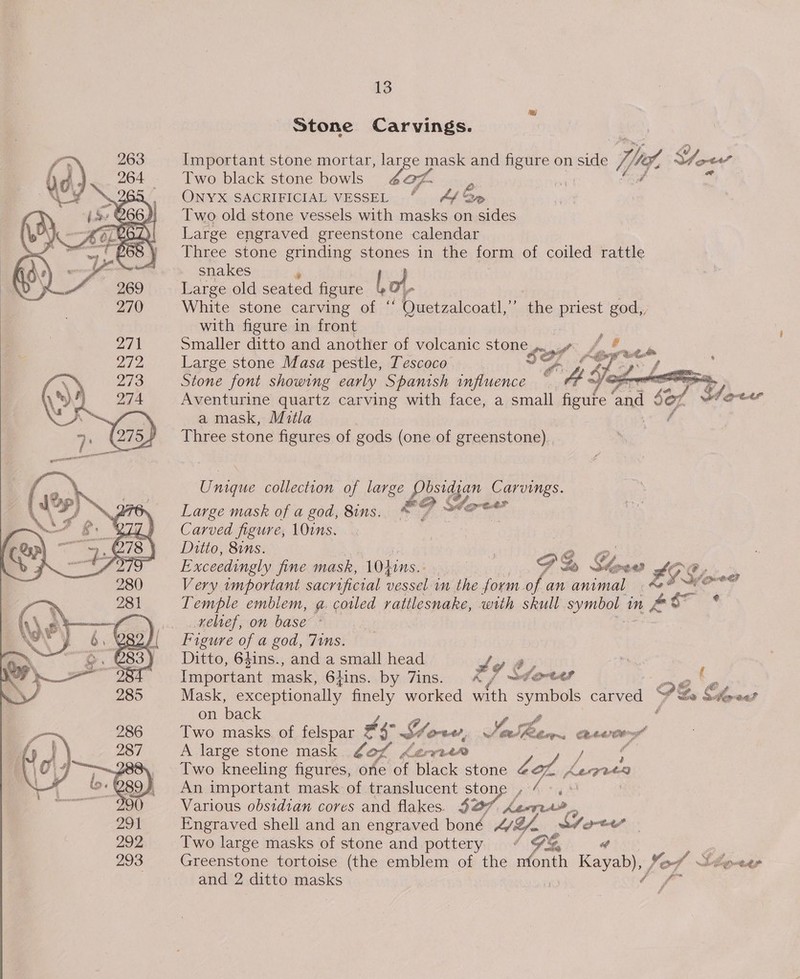 13
Stone Carvings.
263 Important stone mortar, large mask and figure on side
264 Two black stone bowls
265 ONYX SACRIFICIAL VESSEL
266 Two old stone vessels with masks on sides
267 Large engraved greenstone calendar
268 Three stone grinding stones in the form of coiled rattle
snakes
269 Large old seated figure
270 White stone carving of “ Quetzalcoatl,” the priest god,
with figure in front
271 Smaller ditto and another of volcanic stone
272 Large stone Masa pestle, Tescoco
273 Stone font showing early Spanish influence
274 Aventurine quartz carving with face, a small figure and
a mask, Mitla
275 Three stone figures of gods (one of greenstone)
Unique collection of large Obsidian Carvings.
276 Large mask of a god, 8ins.
277 Carved figure, 10ins.
278 Ditto, 8ins.
279 Exceedingly fine mask, 10½ins.
280 Very important sacrificial vessel in the form of an animal
281 Temple emblem, a coiled rattlesnake, with skull symbol in
relief, on base
282 Figure of a god, 7ins.
283 Ditto, 6½ins., and a small head
284 Important mask, 6½ins. by 7ins.
285 Mask, exceptionally finely worked with symbols carved
on back
286 Two masks of felspar
287 A large stone mask
288 Two kneeling figures, one of black stone
289 An important mask of translucent stone
290 Various obsidian cores and flakes.
291 Engraved shell and an engraved bone
292 Two large masks of stone and pottery
293 Greenstone tortoise (the emblem of the month Kayab),
and 2 ditto masks